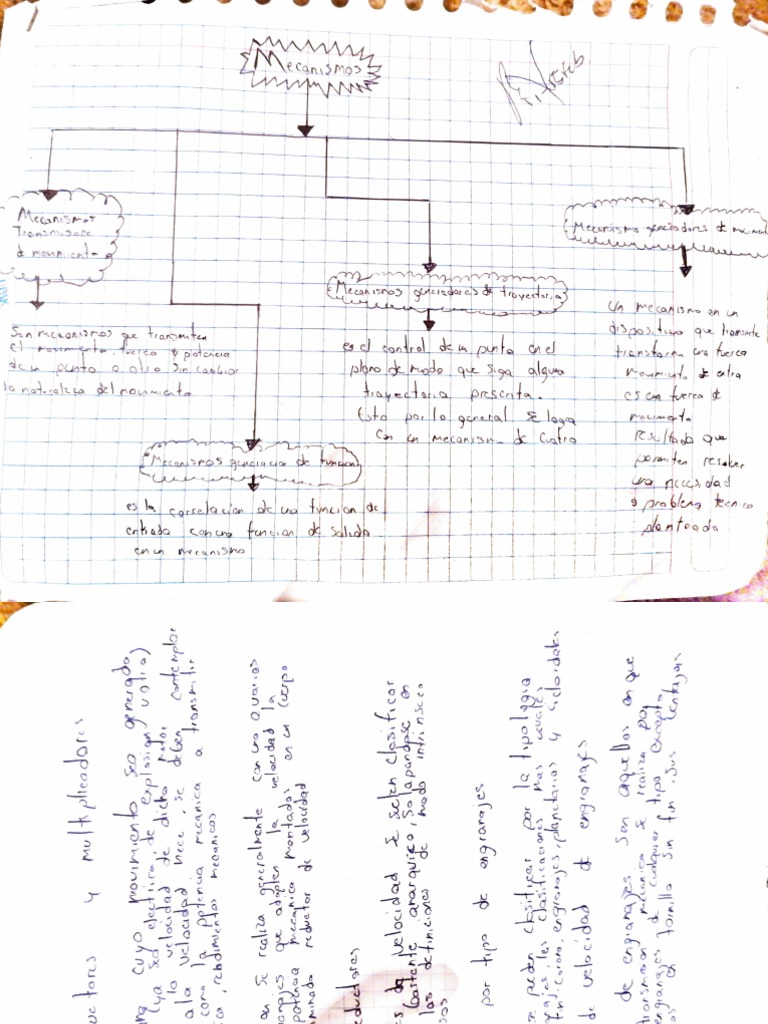 Mecanismos
Mecanismos
Transmisore
de movimiento
Son mecanismos que transmiten
el movimiento, fuerza y potencia
de un punto a otro sin cambiar
la naturaleza del movimiento
Mecanismos generacion de funcion
es la correlacion de una funcion de
entrada con una funcion de salida
en un mecanismo
Mecanismos generedores de trayectoria
es el control de un punto en el
plano de modo que siga alguna
trayectoria prescrita.
Esto por lo general se logra
con un mecanismo de cuatro
Mecanismo generadores de movimient
Un mecanismo en un
dispositivo que transmite
transforma una fuerza
movimiento de entra
es una fuerza de
movimiento
resultado que
permiten resolver
una necesidad
o problema tecnico
planteado
uctores y multiplicadores
ina cuyo movimiento sea generado
(ya sea electrico, de explosion u otro)
la velocidad de dicho motor
a la velocidad nece, se deben contemplar
como la potencia mecanica a transmitir
ica, rendimientos mecanicos
on se realiza generalmente con una o varios
anajes que adapten la velocidad la
potencia mecanica montados en un cuerpo
ominado reductor de velocidad
eductores
es de velocidad se suelen clasificar
bastante anarquico, solapandose en
las definiciones de modo intrinseco
por tipo de engranajes
se pueden clasificar por la tipologia
anajes, las clasificaciones mas usuales
fin-corona, engranajes, planetarios y cicloidales
de velocidad de engranajes
de engranajes son aquellos en que
transmision mecanica se realiza por
engranajes de cualquier tipo excepto
en tornillo sin fin. Sus ventajas